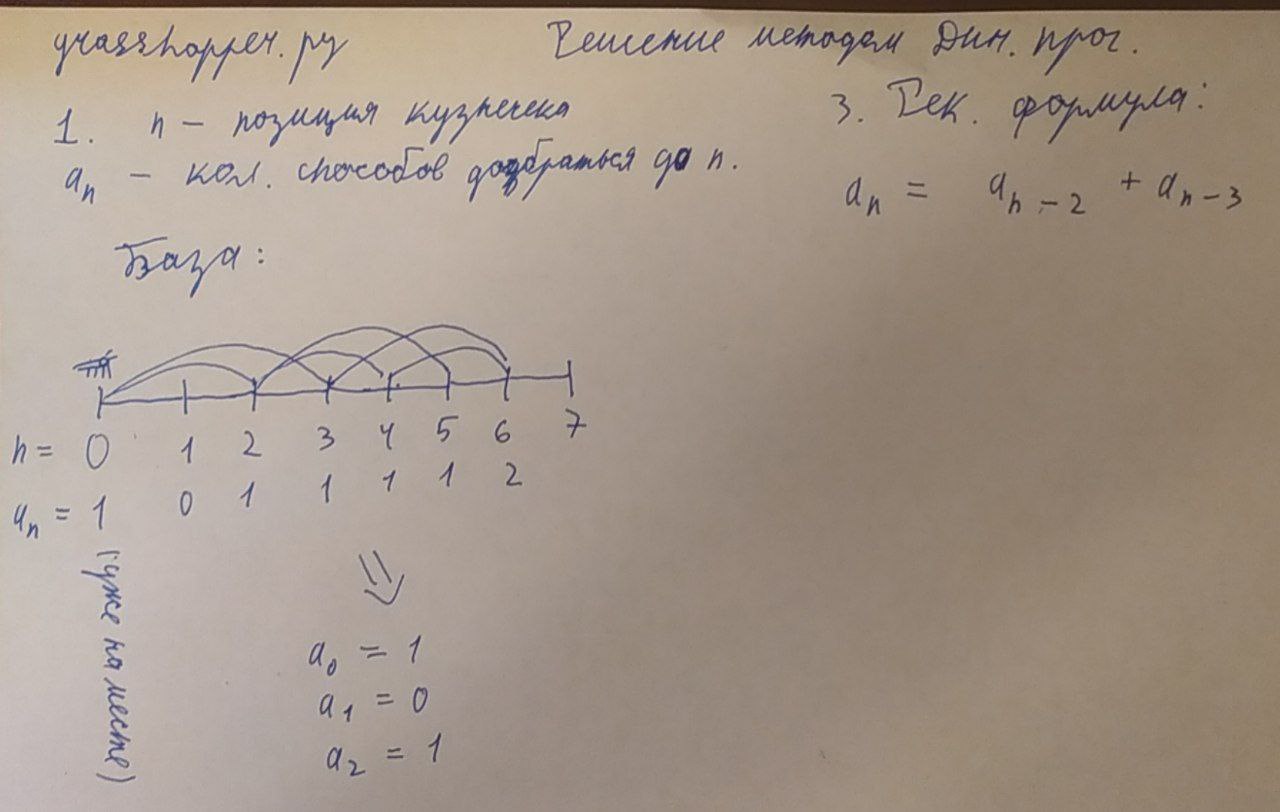 grasshopper.py
Решение методом Дин. прог.
1. n — позиция кузнечека
aₙ — кол. способов добраться до n.
База:
n = 0 1 2 3 4 5 6 7
aₙ = 1 0 1 1 1 1 2
(уже на месте)
⇓
a₀ = 1
a₁ = 0
a₂ = 1
3. Рек. формула:
aₙ = aₙ₋₂ + aₙ₋₃